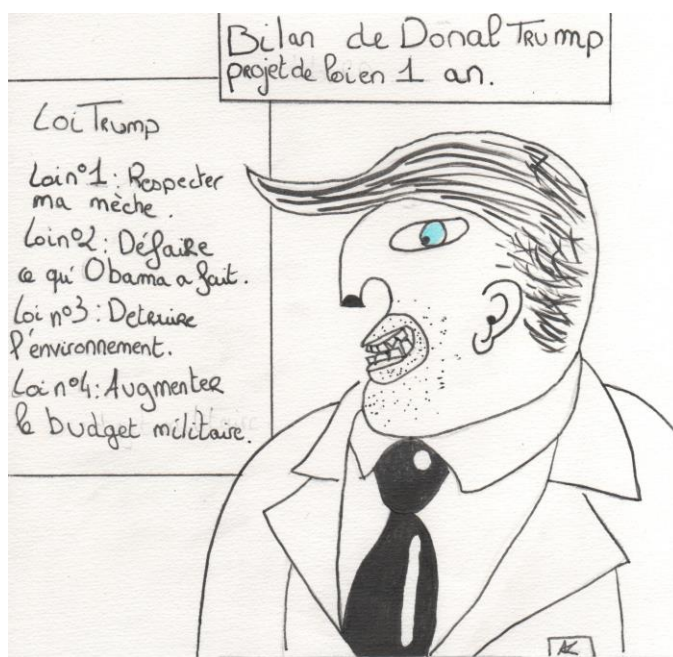 Bilan de Donal Trump
projet de loi en 1 an.
Loi Trump
Loi n°1 : Respecter
ma mèche.
Loi n°2 : Défaire
ce qu'Obama a fait.
Loi n°3 : Detruire
l'environnement.
Loi n°4 : Augmenter
le budget militaire.
AK